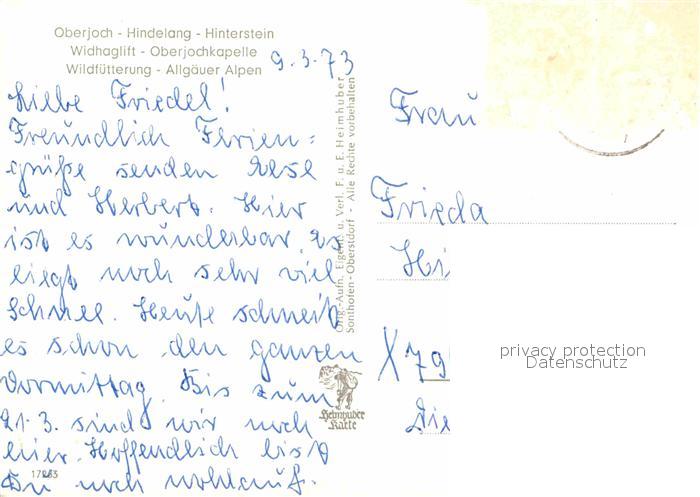 Oberjoch - Hindelang - Hinterstein
Widhaglift - Oberjochkapelle
Wildfütterung - Allgäuer Alpen
9.3.73
Liebe Friedel!
Freundlich Ferien=
grüße senden Rese
und Herbert. Hier
ist es wunderbar. Es
liegt noch sehr viel
Schnee. Heute schneit
es schon den ganzen
Vormittag. Bis zum
21.3. sind wir noch
hier. Hoffendlich bist
Du noch wohlauf.
17263
Orig.-Aufn. Eigent. u. Verl. F. u. E. Heimhuber
Sonthofen - Oberstdorf - Alle Rechte vorbehalten
Heimhuber
Karte
Frau
Frieda
Hi
X 79
Die
privacy protection
Datenschutz